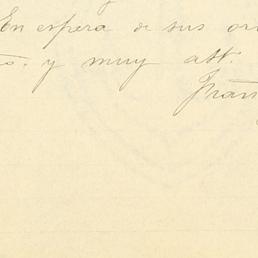 En espera de sus or
to. y muy att.
Fran